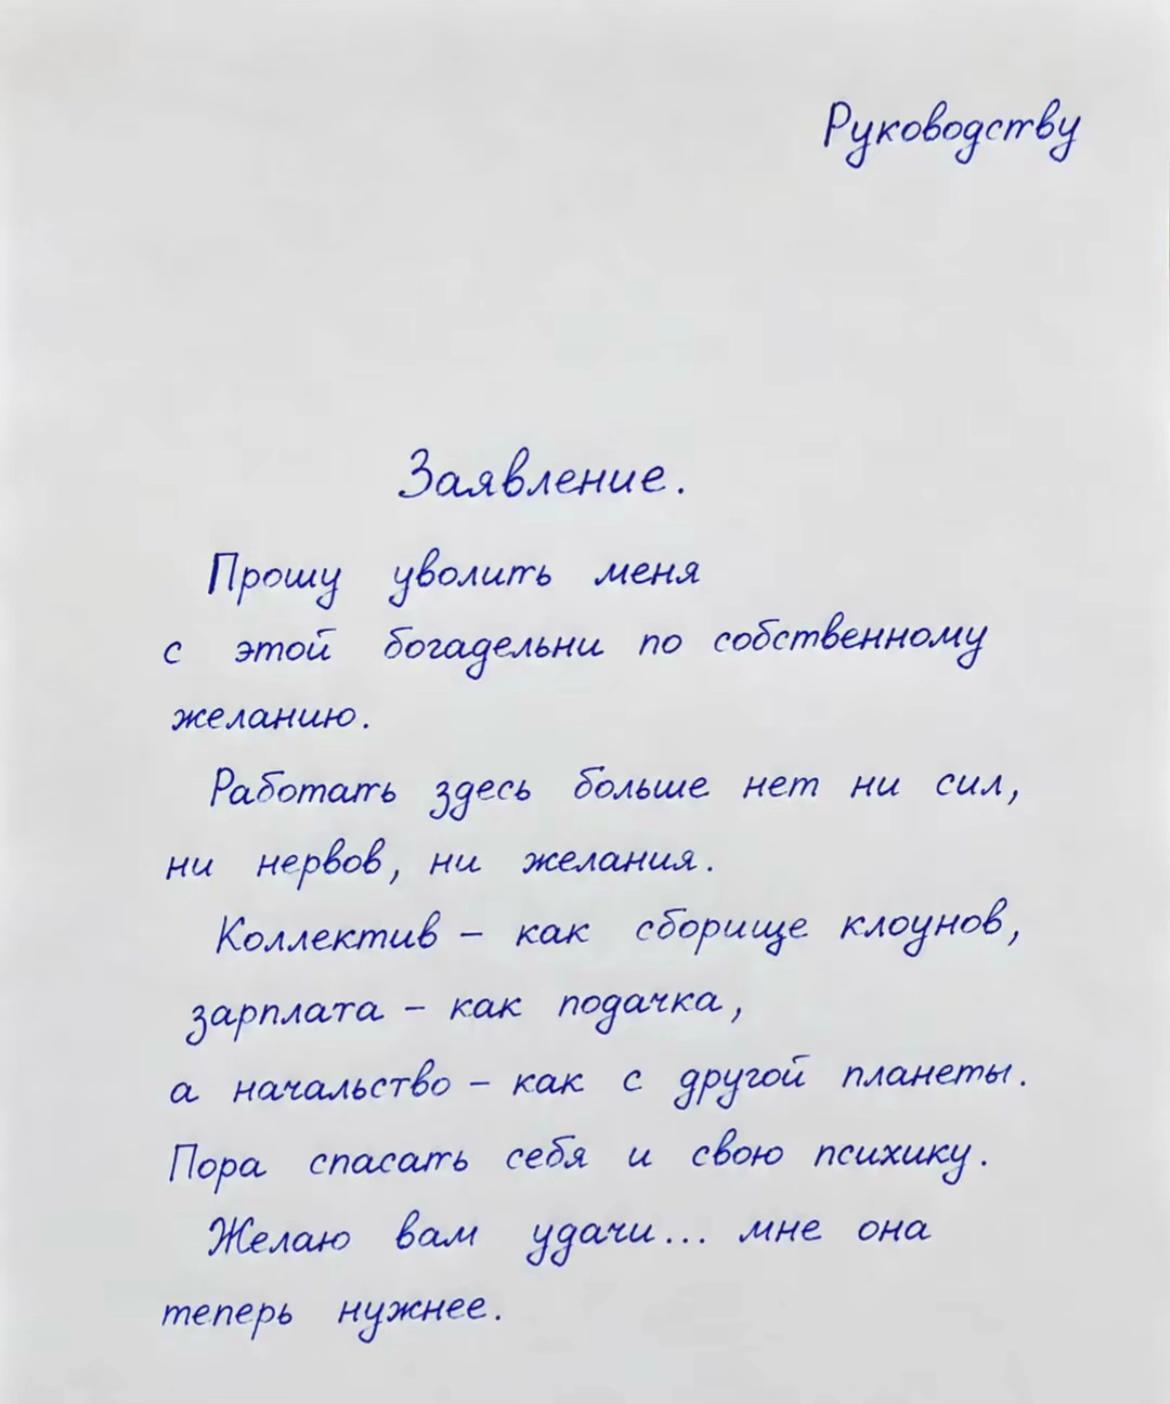 Руководству
Заявление.
Прошу уволить меня
с этой богадельни по собственному
желанию.
Работать здесь больше нет ни сил,
ни нервов, ни желания.
Коллектив – как сборище клоунов,
зарплата – как подачка,
а начальство – как с другой планеты.
Пора спасать себя и свою психику.
Желаю вам удачи... мне она
теперь нужнее.